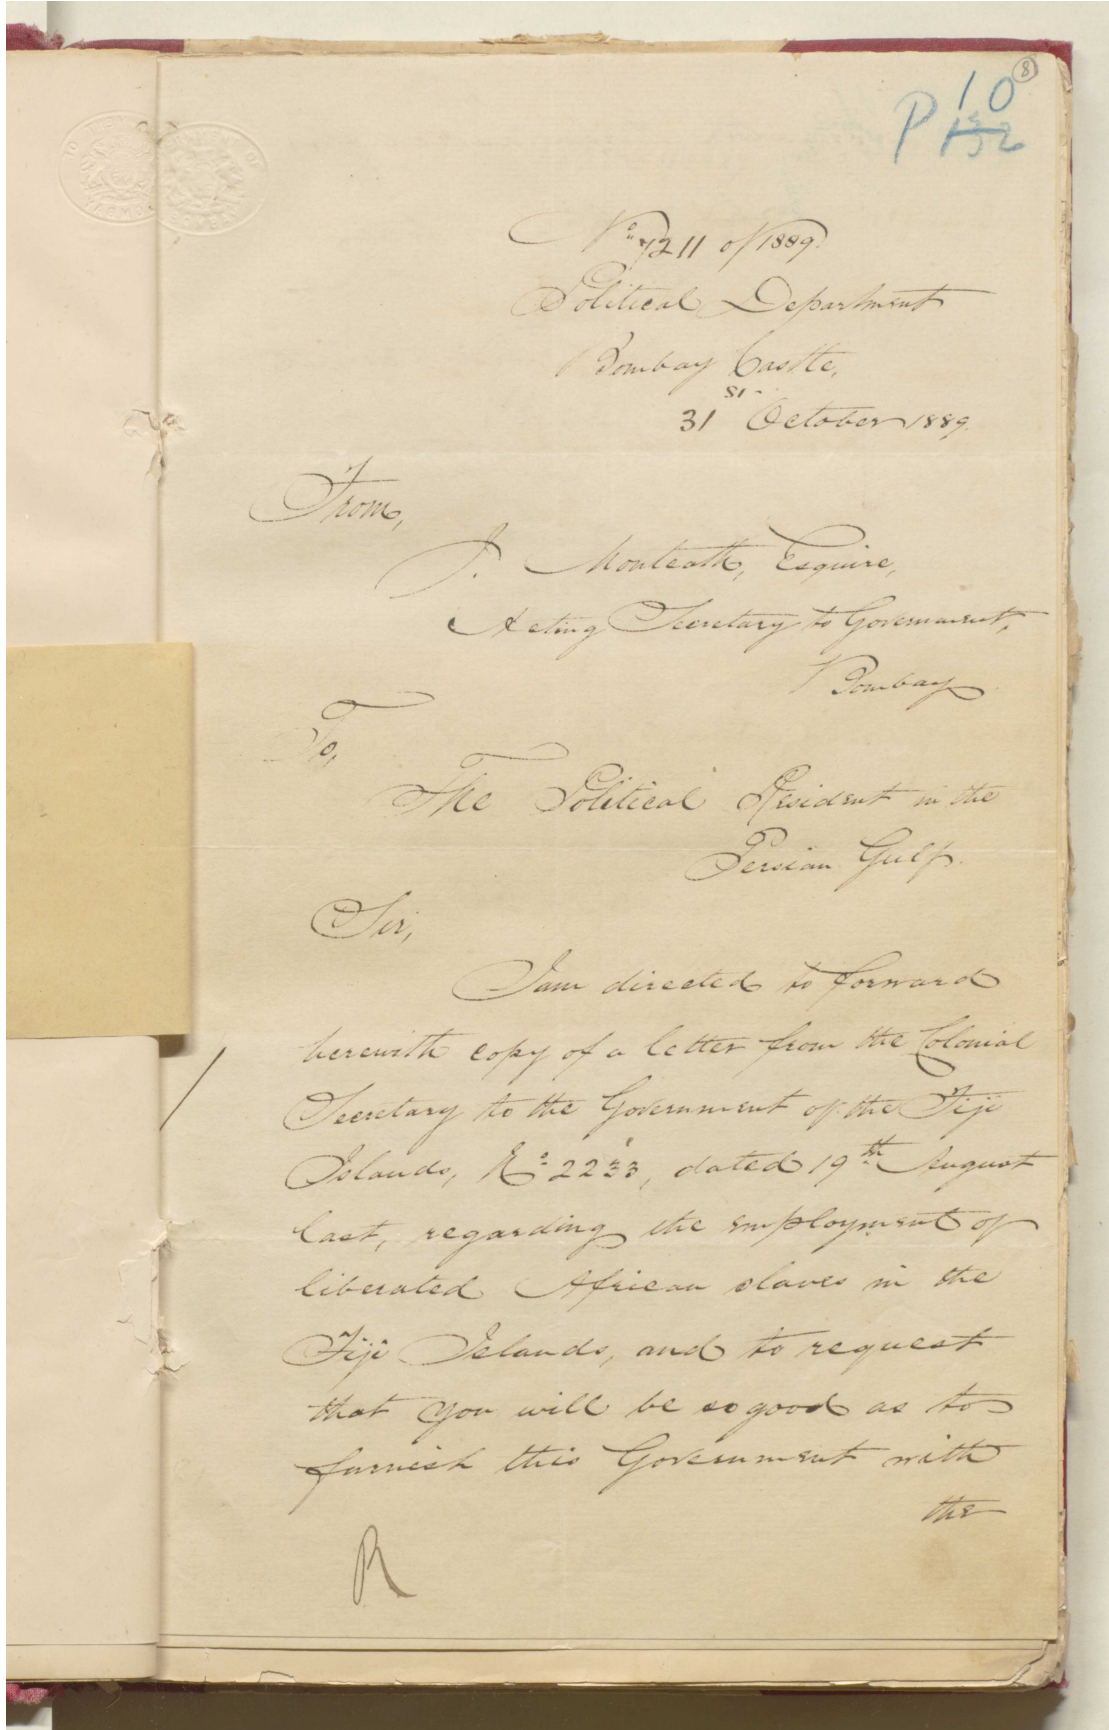 8
P 10
No 7211 of 1889.
Political Department
Bombay Castle,
31st October 1889.
From,
J. Monteath, Esquire,
Acting Secretary to Government,
Bombay
To,
The Political Resident in the
Persian Gulf.
Sir,
I am directed to forward
herewith copy of a letter from the Colonial
Secretary to the Government of the Fiji
Islands, No 2233, dated 19th August
last, regarding the employment of
liberated African slaves in the
Fiji Islands, and to request
that you will be so good as to
furnish this Government with
the
R